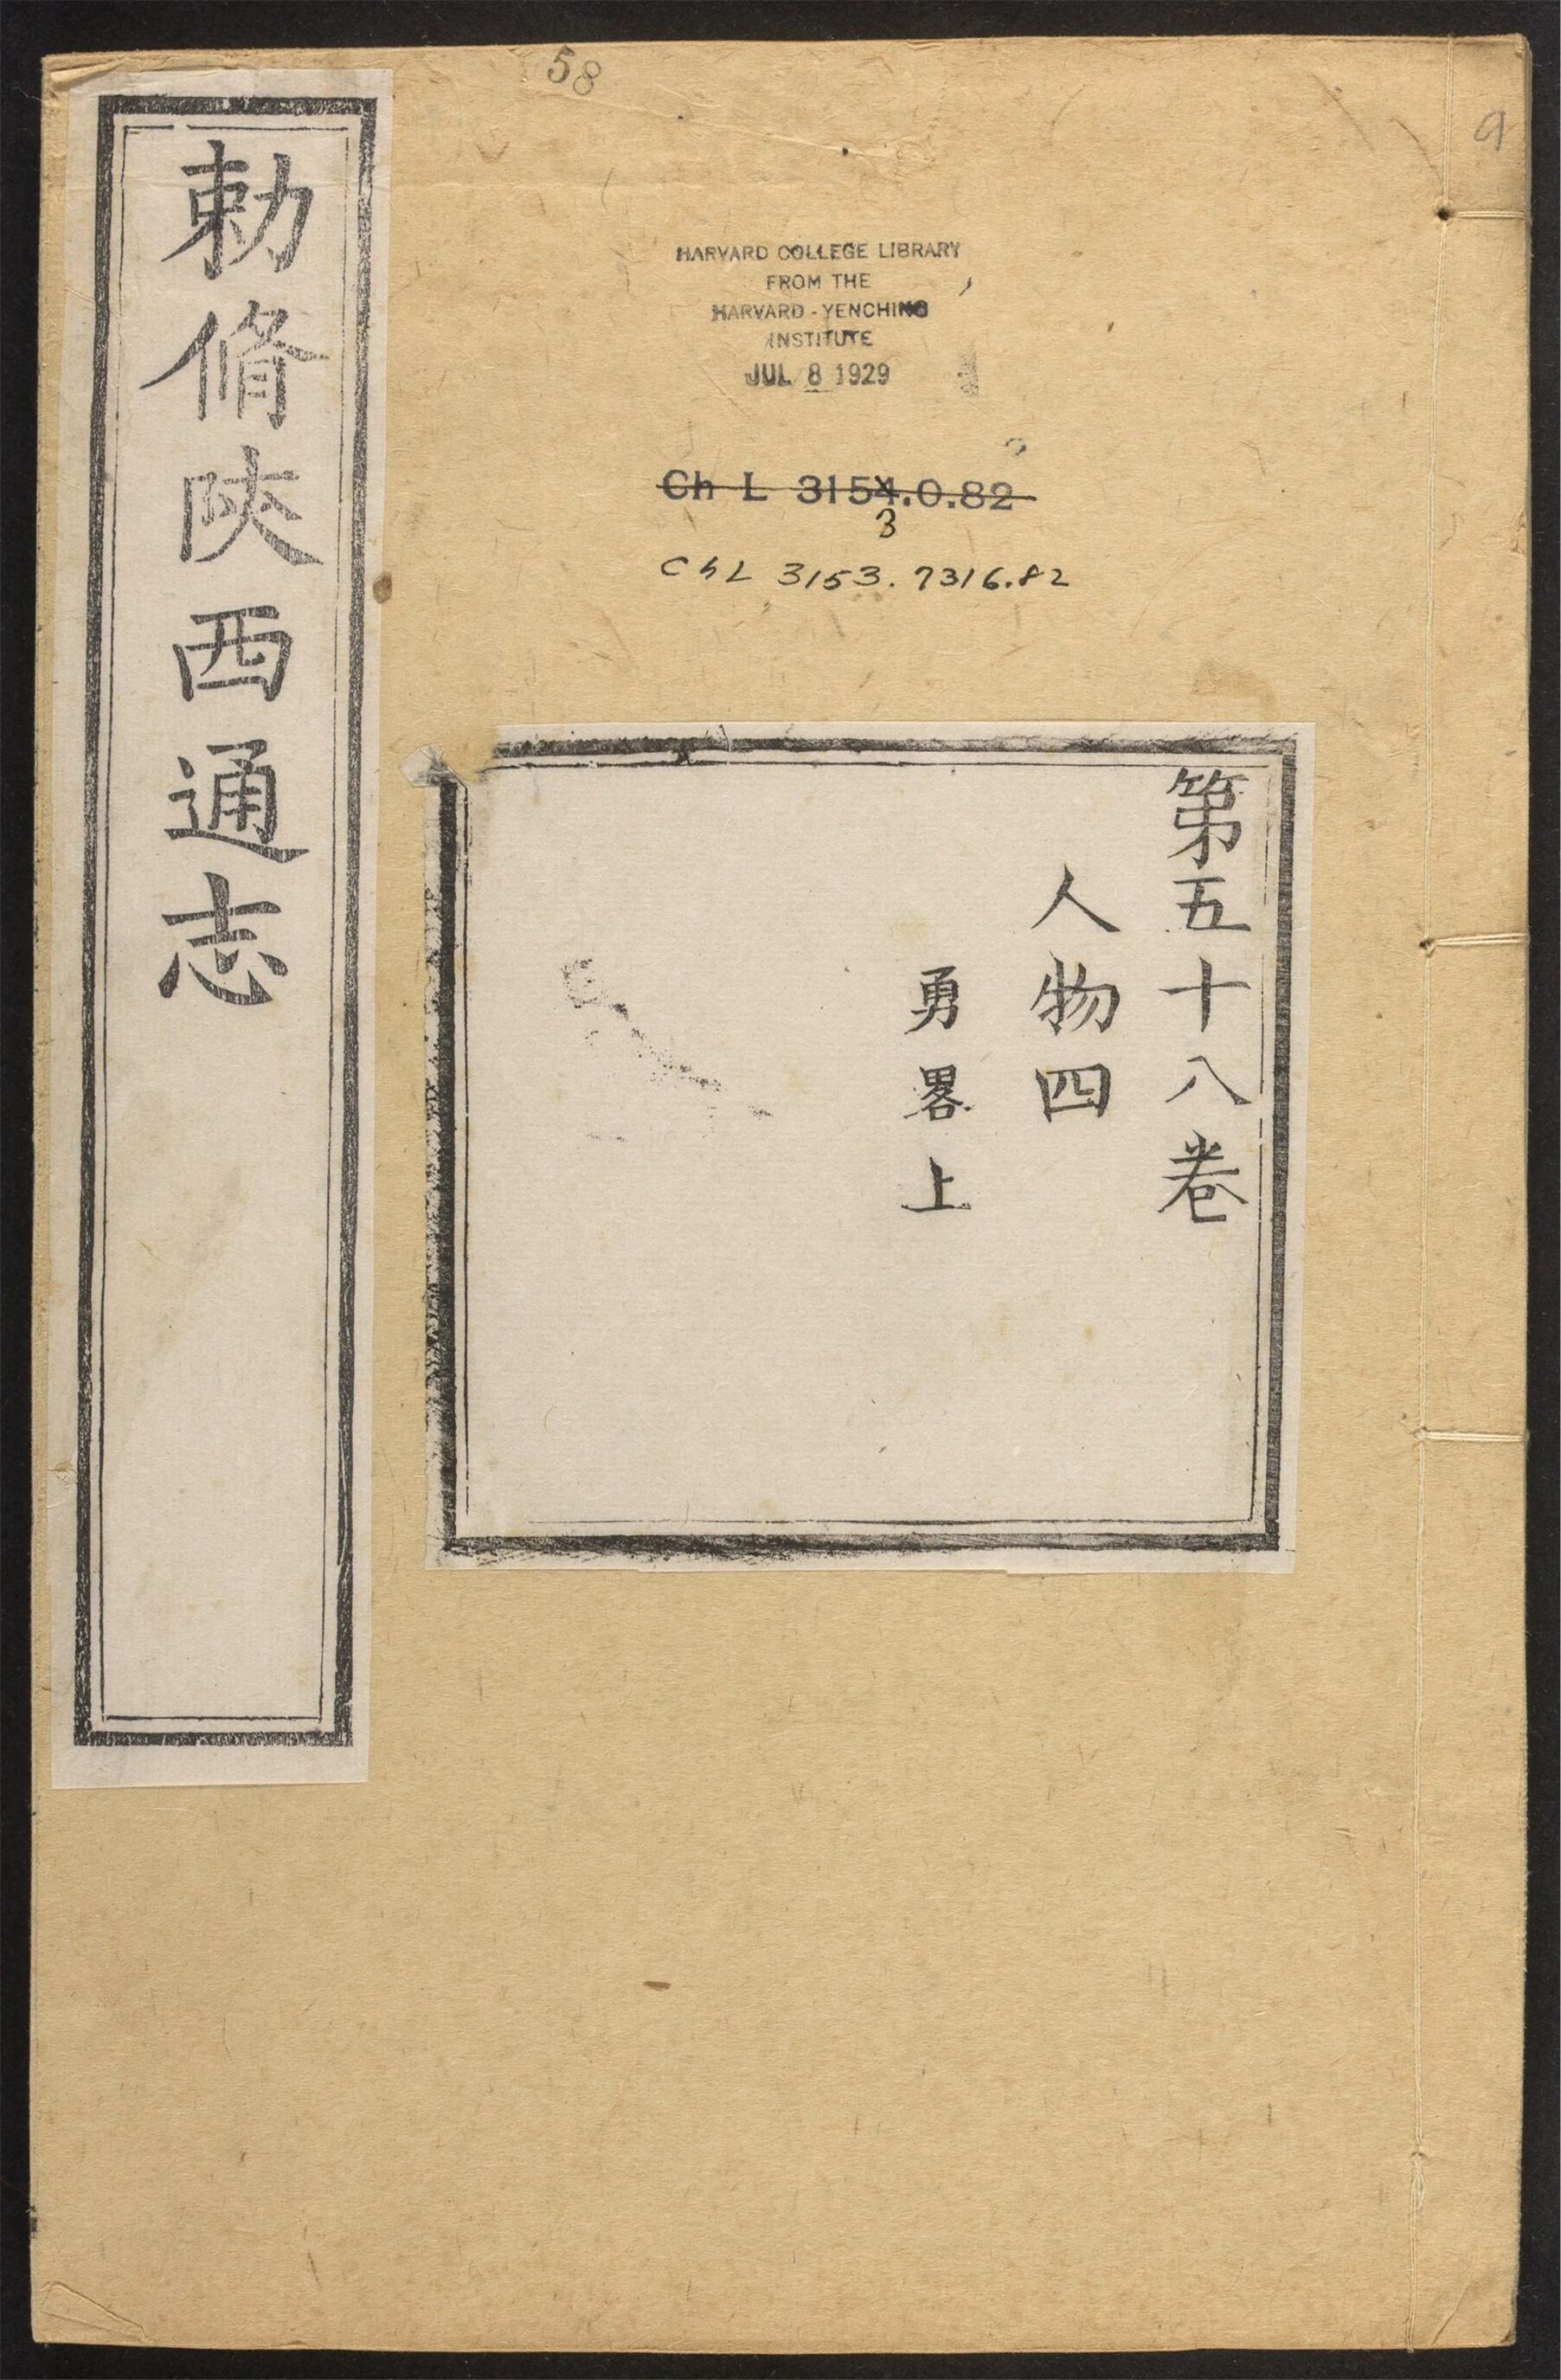 58
9
HARVARD COLLEGE LIBRARY
FROM THE
HARVARD-YENCHING
INSTITUTE
JUL 8 1929
Ch L 3154.0.82
3
ChL 3153.7316.82
勅脩陝西通志
第五十八卷
人物四
勇畧上